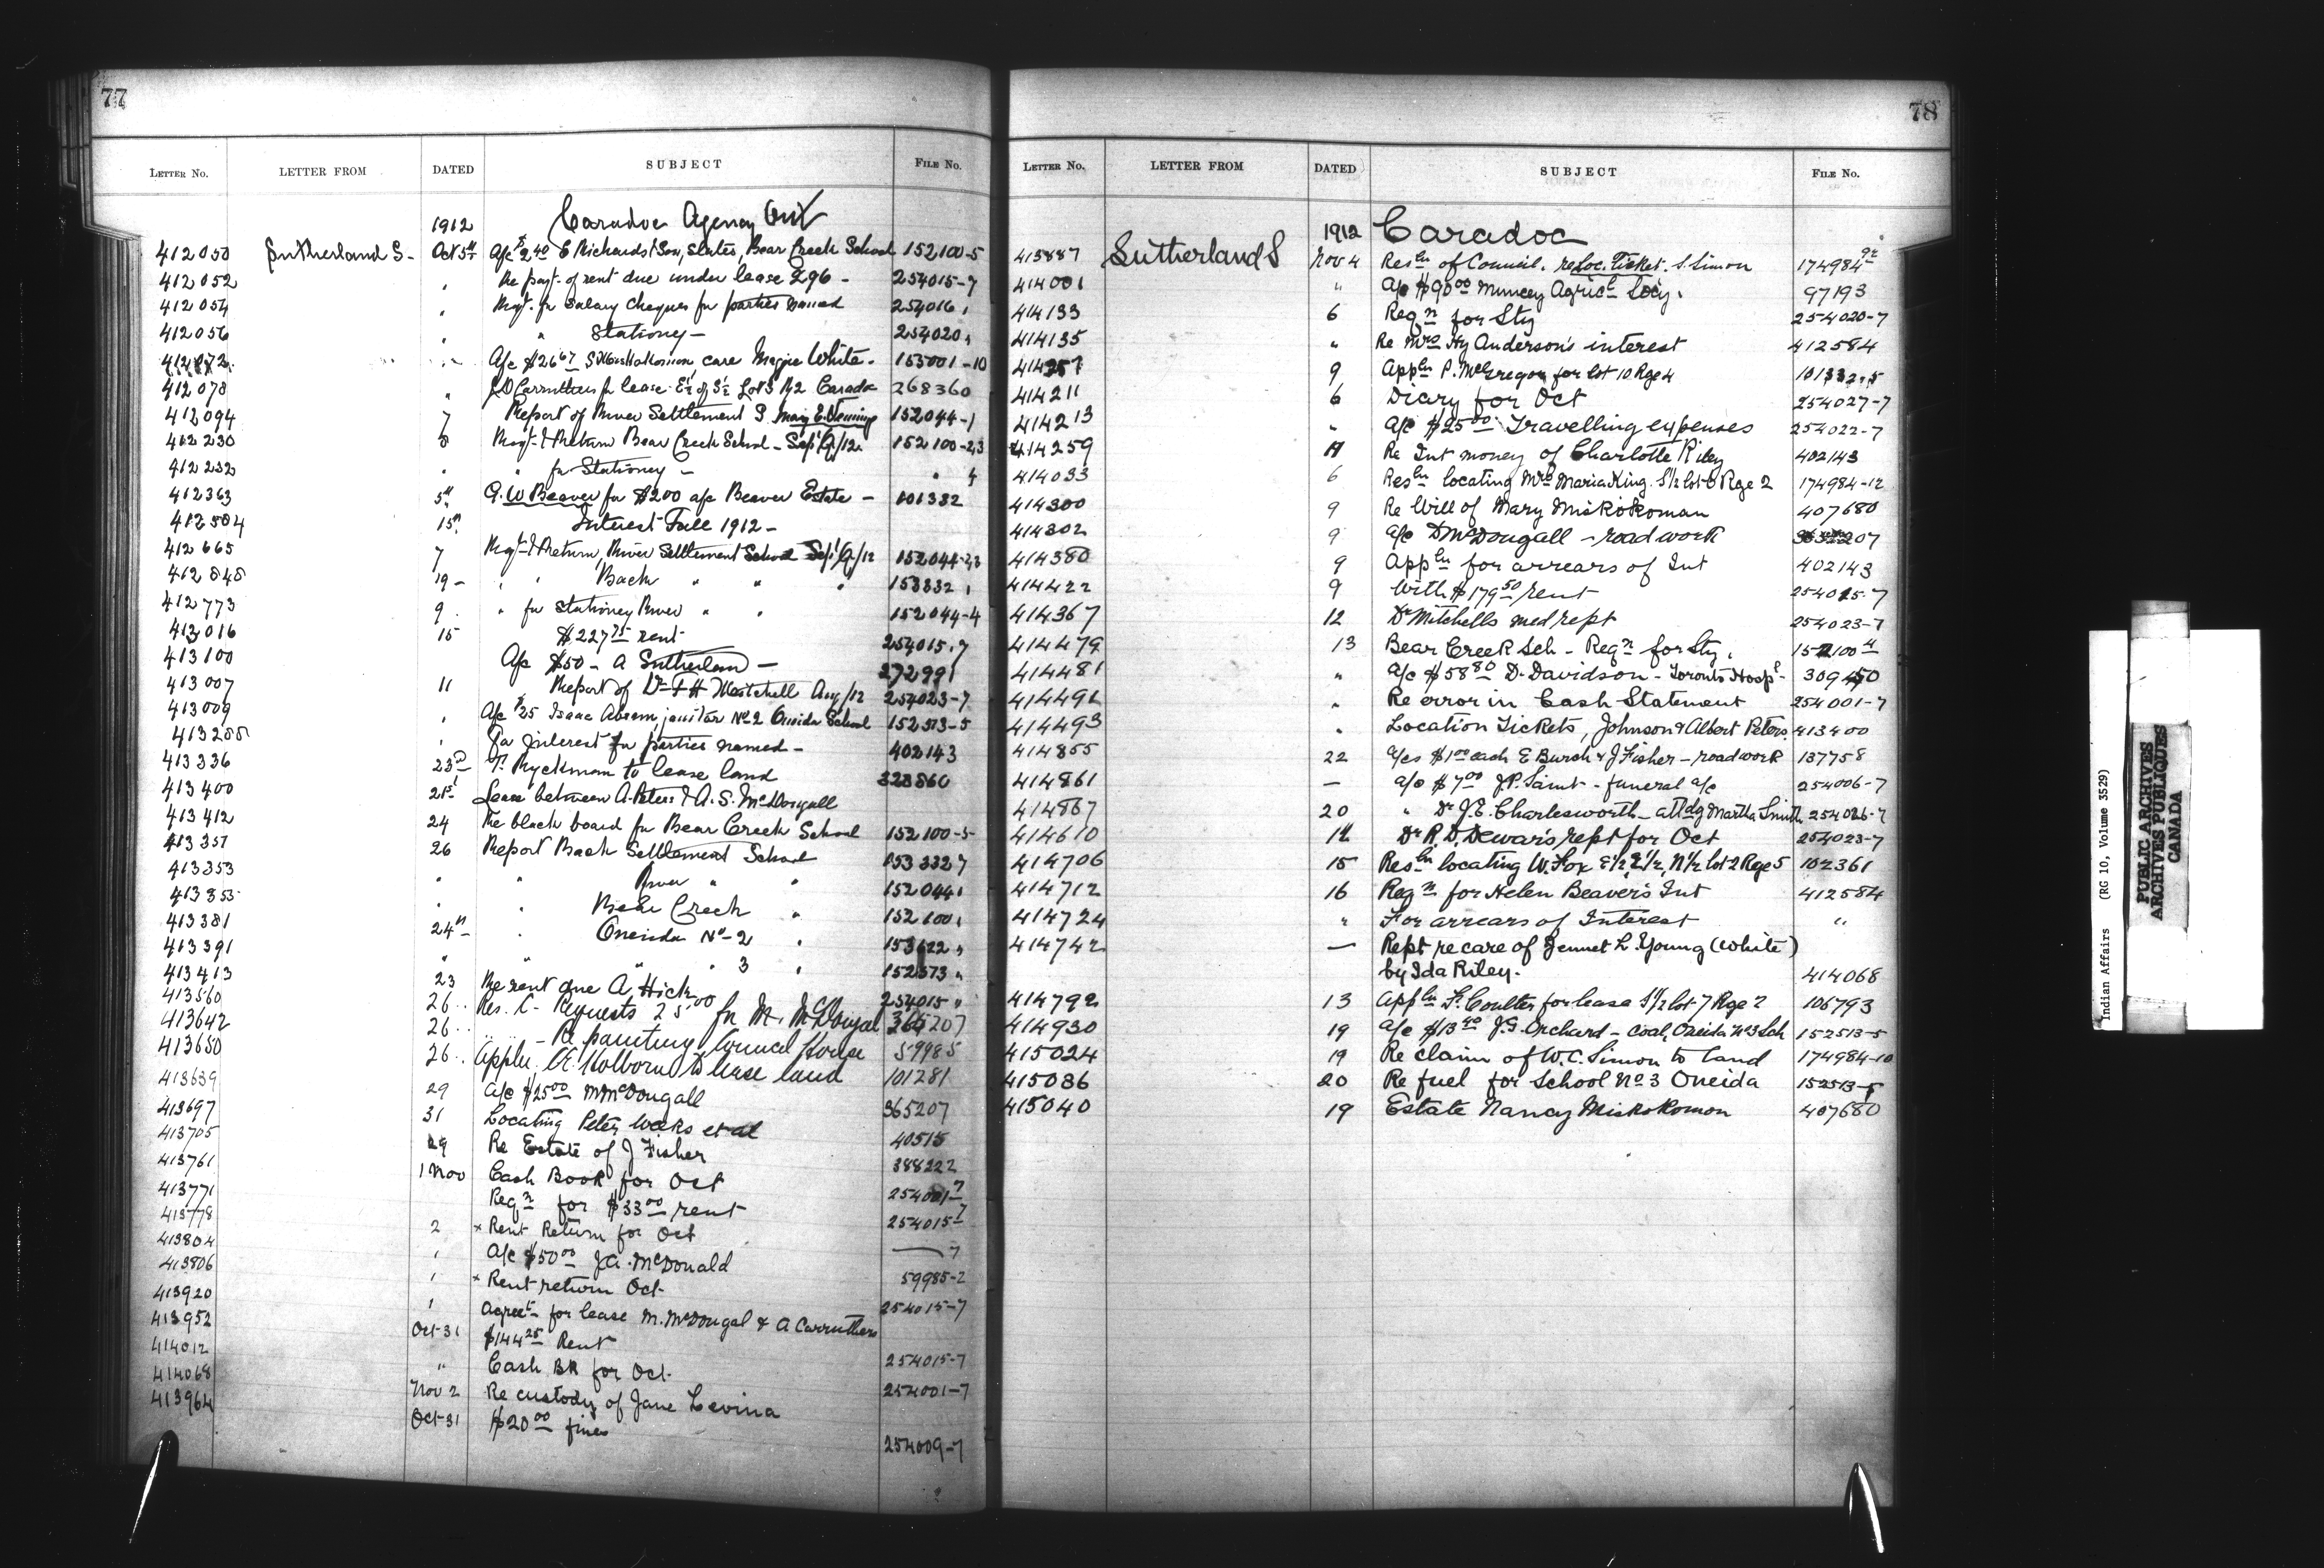 77
LETTER NO. LETTER FROM DATED SUBJECT FILE No.
1912 Caradoc Agency Ont
412050 Sutherland S- Oct 5th A/c $2.40 E Richards & Son, slates, Bear Creek School 152100-5
412052 " Re payt. of rent due under lease 296 - 254015-7
412054 " Reqt. for salary cheques for parties named 254016 "
412056 " " Stationey - 254020 "
412072 " A/c $26 67 care Magie White - 153001-10
412078 " J.D Carruthers for lease E½ of S½ Lot 3 R2 Caradoc 268360
412094 7 Report of River Settlement S Mary E. 152044-1
412230 8 Reqt. & Return Bear Creek School - Sep Q/12 152100-2,3
412232 " " for Stationey - " 4
412363 5th G. W Beaver for $200 a/c Beaver Estate - 101382
412584 15th Interest Fall 1912 -
412665 7 Reqt. & Return, River Settlement School Sep Q/12 152044-2,3
412848 19 - " " Back " " " 153332 "
412773 9 " for stationey River " " 152044-4
413016 15 $227 75 rent 254015-7
413100 A/c $50 - A Sutherland - 272991
413007 11 Report of Dr F H Mitchell Aug/12 254023-7
413009 " A/c $25 Isaac Abram, janitor No 2 Oneida School 152573-5
413288 " For interest for parties named - 402143
413336 23rd T. Ryckman to lease land 323860
413400 21st Lease between A. Peters & A. S. McDougall
413412 24 Re black board for Bear Creek School 152100-5
413351 26 Report Back Settlement School 153332 7
413353 " " River " " 152044 "
413355 " " Creek " 152100 "
413381 24th " Oneida No - 2 " 153622 "
413391 " " " " 3 " 152573 "
413413 23 Re rent due A Hick 254015 "
413560 26 " Res. C- Requests 25 00 for M. McDougal 365207
413642 26 " " - Re painting Council House 59985
413650 26 " Appln. A. Holborn to lease land 101281
413639 29 A/c $25 00 M McDougall 365207
413697 31 Locating Peter Weeks et al 40515
413705 29 Re Estate of J Fisher 388222
413761 1 Nov Cash Book for Oct 254001-7
413771 Reqn for $33 00 rent 254015-7
413778 2 x Rent Return for Oct — 7
413804 " A/c $50 00 J.A. McDonald 59985-2
413806 " x Rent return Oct. 254015-7
413920 " Agreet- for lease M. McDougal & A Carruthers
413952 Oct 31 $144 25 Rent 254015-7
414012 " Cash BK for Oct. 254001-7
414068 Nov 2 Re custody of Jane Levina
413964 Oct 31 $20 00 fines 254009-7
78
LETTER NO. LETTER FROM DATED SUBJECT FILE No.
1912 Caradoc
413887 Sutherland S Nov 4 Resln of Council. re Loc. Ticket. S. Simon 174984
414001 " A/c $90 00 Muncey Agricl Socy. 97193
414133 6 Reqn for Sty 254020-7
414135 " Re Mrs Hy Anderson's interest 412584
414257 9 Appln P. McGregor for lot 10 Rge 4 101332-5
414211 6 Diary for Oct 254027-7
414213 " A/c $25 00 Travelling expenses 254022-7
414259 Re Int money of Charlotte Riley 402143
414033 6 Resln locating Mrs Maria King. S½ lot 6 Rge 2 174984-12
414300 9 Re Will of Mary Miskokoman 407680
414302 9 a/c D McDougall - road work 365207
414380 9 Appln for arrears of Int 402143
414422 9 With $179 50 rent 254015-7
414367 12 Dr Mitchells med rept 254023-7
414479 13 Bear Creek Sch - Reqn for Sty. 152100-4
414481 " A/c $58 80 D. Davidson - Toronto Hospl - 309450
414491 " Re error in Cash Statement 254001-7
414493 " Location Tickets, Johnson & Albert Peters. 413400
414855 22 A/cs $1 00 each E Burch & J Fisher - road work 137758
414861 — a/c $7 00 J.P. Saint - funeral a/c 254006-7
414867 20 " Dr J.E. Charlesworth - attdg Martha Smith 254026-7
414610 12 Dr R. D. Dewar's rept for Oct 254023-7
414706 15 Resln locating W. Fox E½, E½, N½ lot 2 Rge 5 102361
414712 16 Reqn for Helen Beaver's Int 412584
414724 " For arrears of Interest "
414742 — Rept re care of Jennet L. Young (White)
by Ida Riley. 414068
414792 13 Appln F. Coulter for lease S½ lot 7 Rge 2 106793
414930 19 A/c $13 40 J.G. Orchard - Coal, Oneida No 3 Sch 152513-5
415024 19 Re claim of W.C. Simon to land 174984-10
415036 20 Re fuel for School No 3 Oneida 152513-5
415040 19 Estate Nancy Miskokomon 407680
Indian Affairs (RG 10, Volume 3529)
PUBLIC ARCHIVES
ARCHIVES PUBLIQUES
CANADA